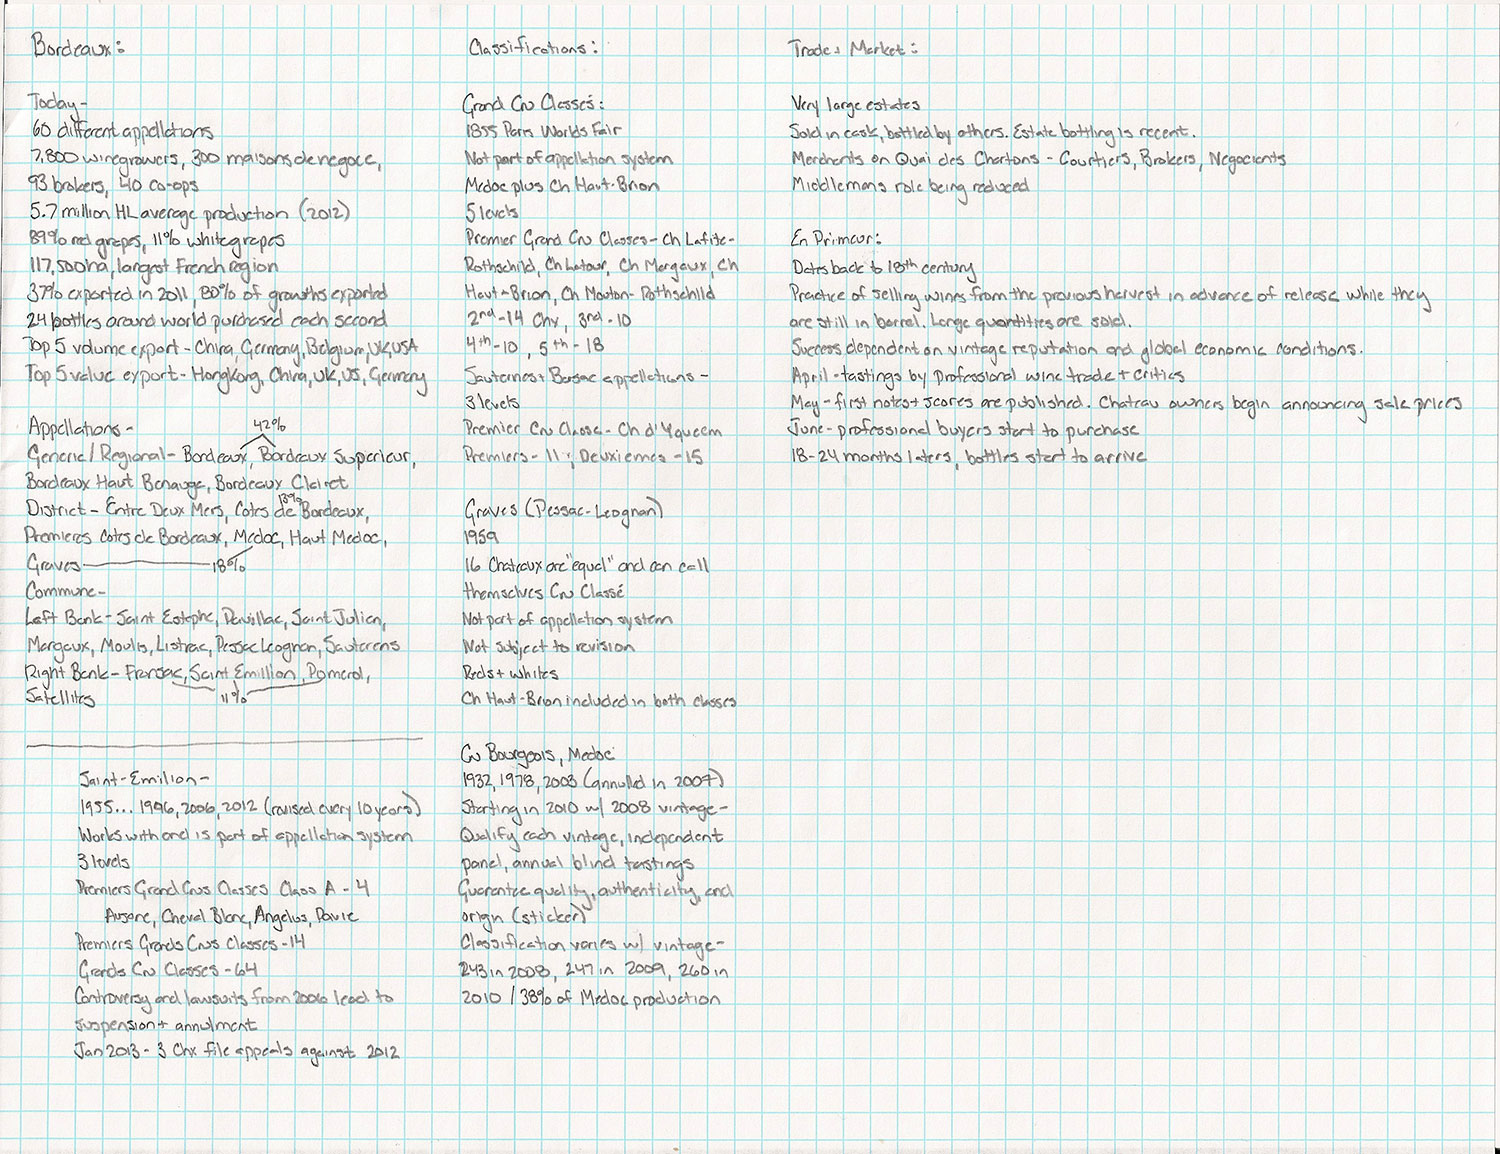 Bordeaux:
Today-
60 different appellations
7,800 winegrowers, 300 maisons de negoce,
93 brokers, 40 co-ops
5.7 million HL average production (2012)
89% red grapes, 11% white grapes
117,500ha, largest French region
37% exported in 2011, 80% of growths exported
24 bottles around world purchased each second
Top 5 volume export - China, Germany, Belgium, UK, USA
Top 5 value export - Hong Kong, China, UK, US, Germany
Appellations -
42%
Generic/Regional - Bordeaux, Bordeaux Superieur,
Bordeaux Haut Benauge, Bordeaux Clairet
13%
District - Entre Deux Mers, Cotes de Bordeaux,
Premieres Cotes de Bordeaux, Medoc, Haut Medoc,
Graves 18%
Commune-
Left Bank - Saint Estephe, Pauillac, Saint Julien,
Margaux, Moulis, Listrac, Pessac Leognan, Sauterens
Right Bank - Fronsac, Saint Emillion, Pomerol,
Satellites 11%
Saint-Emilion -
1955... 1996, 2006, 2012 (revised every 10 years)
Works with and is part of appellation system
3 levels
Premiers Grand Crus Classes Class A - 4
Ausone, Cheval Blanc, Angelus, Pavie
Premiers Grands Crus Classes - 14
Grands Cru Classes - 64
Controversy and lawsuits from 2006 lead to
suspension + annulment
Jan 2013 - 3 Chx file appeals against 2012
Classifications:
Grand Cru Classés:
1855 Paris Worlds Fair
Not part of appellation system
Medoc plus Ch Haut-Brion
5 levels
Premier Grand Cru Classes - Ch Lafite-
Rothschild, Ch Latour, Ch Margaux, Ch
Haut-Brion, Ch Mouton-Rothschild
2nd - 14 Chx, 3rd - 10
4th - 10, 5th - 18
Sauternes + Barsac appellations -
3 levels
Premier Cru Classe - Ch d'Yqueem
Premiers - 11, Deuxiemes - 15
Graves (Pessac-Leognan)
1959
16 Chateaux are "equal" and can call
themselves Cru Classé
Not part of appellation system
Not subject to revision
Reds + whites
Ch Haut-Brion included in both classes
Cru Bourgeois, Medoc
1932, 1978, 2003 (annulled in 2007)
Starting in 2010 w/ 2008 vintage-
Qualify each vintage, independent
panel, annual blind tastings
Guarantee quality, authenticity, and
origin (sticker)
Classification varies w/ vintage-
243 in 2008, 247 in 2009, 260 in
2010 / 38% of Medoc production
Trade + Market:
Very large estates
Sold in cask, bottled by others. Estate bottling is recent.
Merchants on Quai des Chartons - Courtiers, Brokers, Negociants
Middlemans role being reduced
En Primeur:
Dates back to 18th century
Practice of selling wines from the previous harvest in advance of release while they
are still in barrel. Large quantities are sold.
Success dependent on vintage reputation and global economic conditions.
April - tastings by professional wine trade + critics
May - first notes + scores are published. Chateau owners begin announcing sale prices
June - professional buyers start to purchase
18-24 months laters, bottles start to arrive